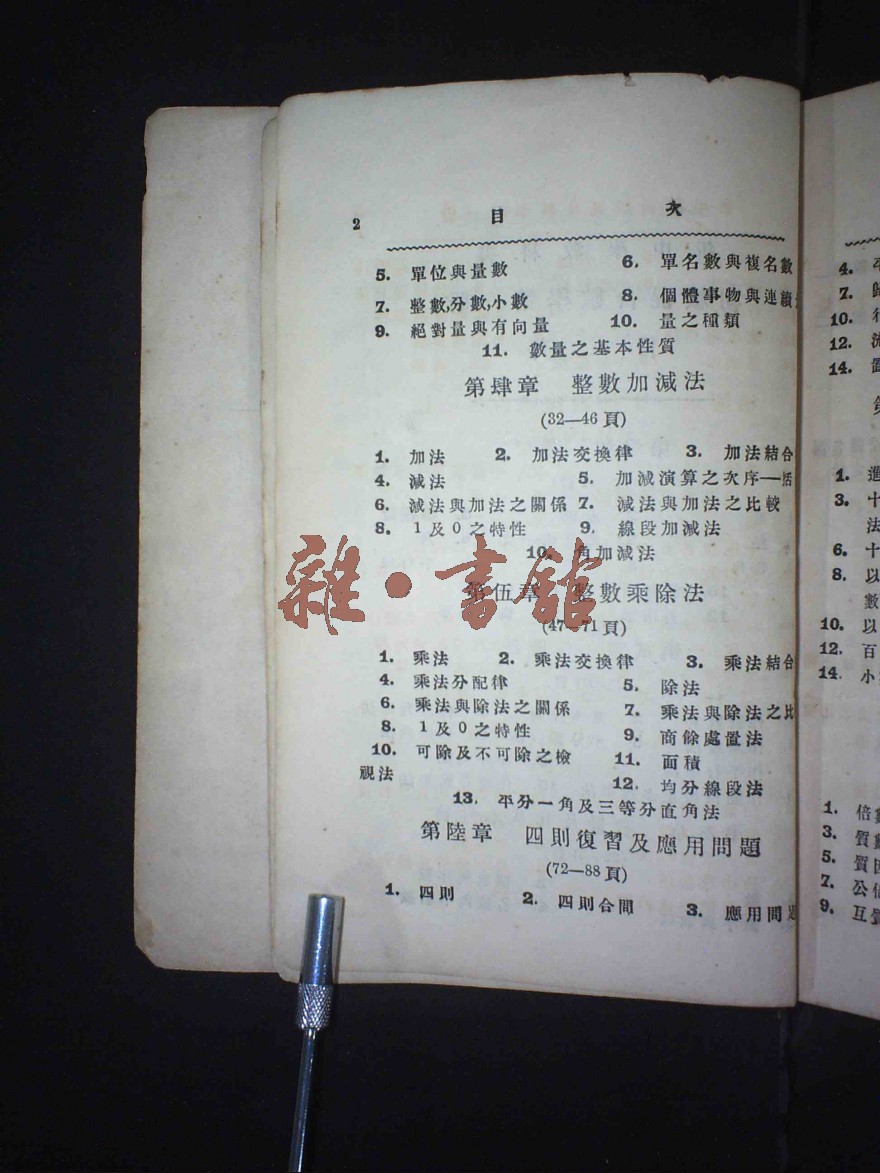 2 目 次
5. 單位與量數 6. 單名數與複名數
7. 整數,分數,小數 8. 個體事物與連續
9. 絕對量與有向量 10. 量之種類
11. 數量之基本性質
第肆章 整數加減法
(32—46頁)
1. 加法 2. 加法交換律 3. 加法結合
4. 減法 5. 加減演算之次序—括
6. 減法與加法之關係 7. 減法與加法之比較
8. 1及0之特性 9. 線段加減法
10. 角加減法
第伍章 整數乘除法
(47—71頁)
1. 乘法 2. 乘法交換律 3. 乘法結合
4. 乘法分配律 5. 除法
6. 乘法與除法之關係 7. 乘法與除法之比
8. 1及0之特性 9. 商餘處置法
10. 可除及不可除之檢 11. 面積
視法 12. 均分線段法
13. 平分一角及三等分直角法
第陸章 四則復習及應用問題
(72—88頁)
1. 四則 2. 四則合問 3. 應用問
雜·書館
4. 平
7.
10.
12. 流
14.
第
1. 進
3. 十
法
6. 十
8. 以
數
10. 以
12. 百
14. 小
1. 倍
3. 質
5. 質
7. 公
9. 互